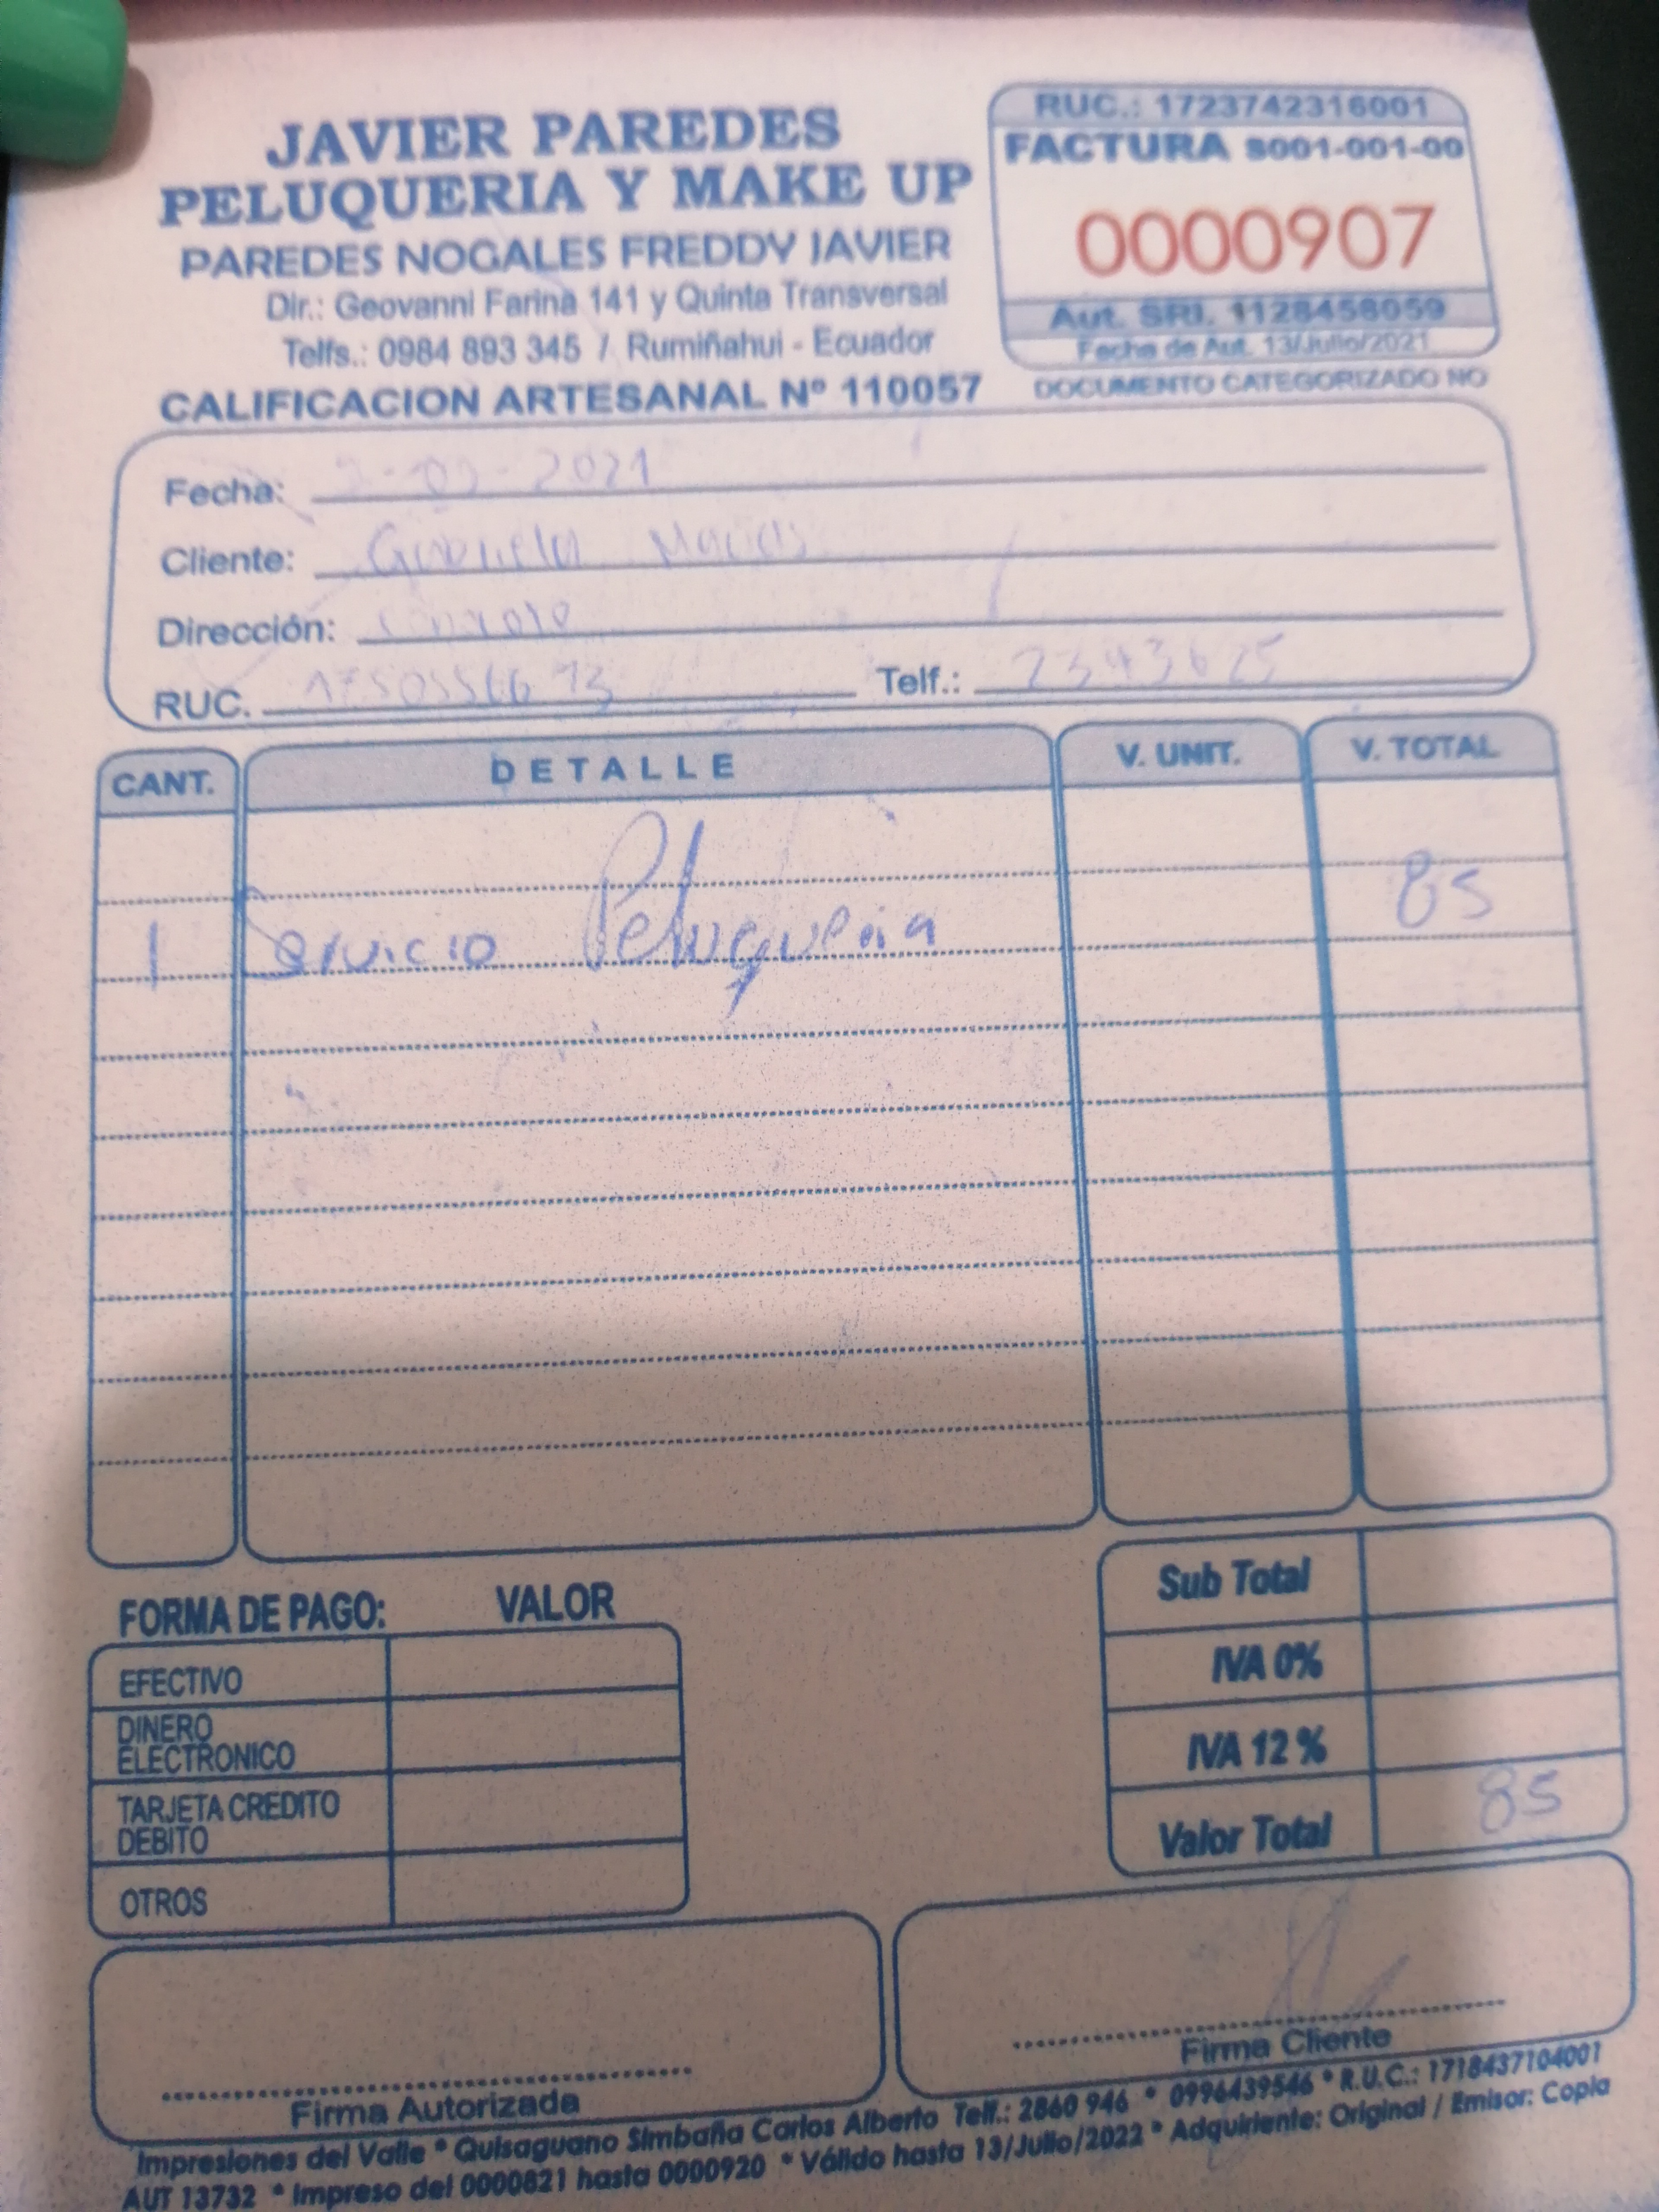 JAVIER PAREDES
PELUQUERIA Y MAKE UP
PAREDES NOGALES FREDDY JAVIER
Dir.: Geovanni Farina 141 y Quinta Transversal
Telfs.: 0984 893 345 / Rumiñahui - Ecuador
CALIFICACION ARTESANAL Nº 110057
RUC.: 1723742316001
FACTURA S001-001-00
0000907
Aut. SRI. 1128458059
Fecha de Aut. 13/Julio/2021
DOCUMENTO CATEGORIZADO NO
Fecha: 2021
Cliente: Gabriela
Dirección:
RUC. Telf.: 2343625
CANT. DETALLE V. UNIT. V. TOTAL
1 Servicio Peluqueria 85
Sub Total
IVA 0%
IVA 12 %
Valor Total 85
FORMA DE PAGO: VALOR
EFECTIVO
DINERO
ELECTRONICO
TARJETA CREDITO
DEBITO
OTROS
Firma Autorizada
Firma Cliente
Impresiones del Valle * Quisaguano Simbaña Carlos Alberto Telf.: 2860 946 * 0996439546 * R.U.C.: 1718437104001
AUT 13732 * Impreso del 0000821 hasta 0000920 * Válido hasta 13/Julio/2022 * Adquiriente: Original / Emisor: Copia